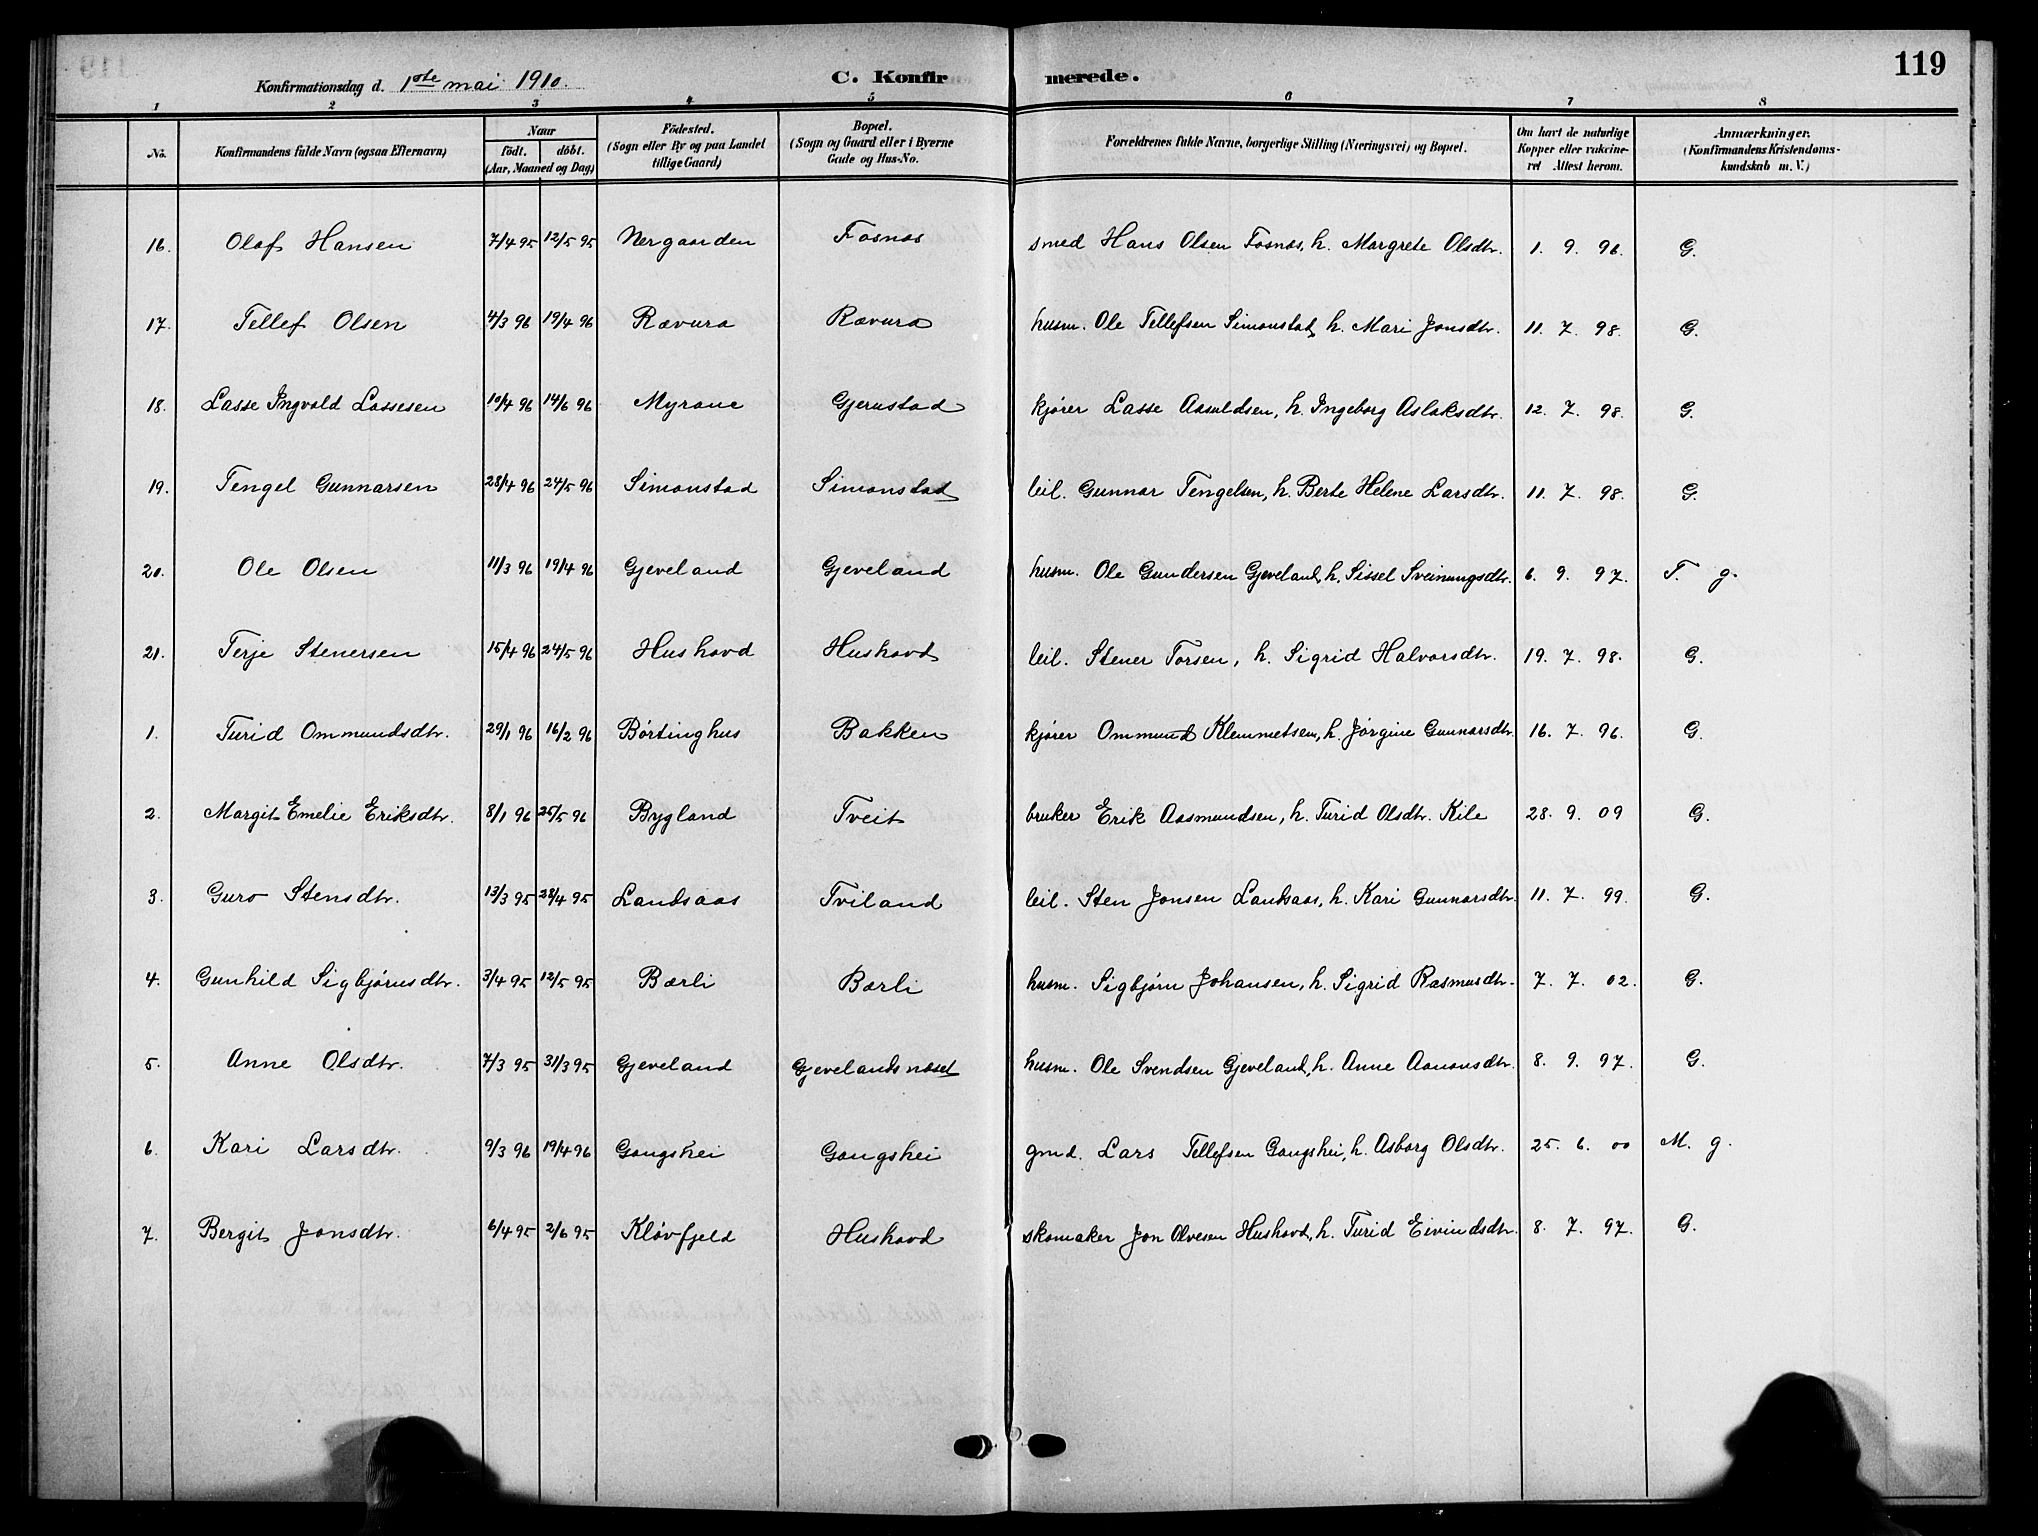 119
Konfirmationsdag d. 1ste mai 1910. C. Konfirmerede.
1 2 3 4 5 6 7 8
No. Konfirmandens fulde Navn (ogsaa Efternavn) Naar födt. döbt. (Aar, Maaned og Dag) Födested. (Sogn eller By og paa Landet tillige Gaard) Bopæl. (Sogn og Gaard eller i Byerne Gade og Hus-No. Forældrenes fulde Navne, borgerlige Stilling (Næringsvei) og Bopæl. Om havt de naturlige Kopper eller vakcineret Attest herom. Anmærkninger. (Konfirmandens Kristendomskundskab m. V.)
16. Olaf Hansen 7/4 95 12/5 95 Nergaarden Fosnas smed Hans Olsen Fosnas, h. Margrete Olsdtr. 1. 9. 96. G.
17. Tellef Olsen 4/3 96 19/4 96 Rævura Rævura husm. Ole Tellefsen Simonstad, h. Mari Jonsdtr. 11. 7. 98. G.
18. Lasse Ingvald Lassesen 10/4 96 14/6 96 Myrane Gjerustad kjörer Lasse Aasuldsen, h. Ingeborg Aslaksdtr. 12. 7. 98. G.
19. Tengel Gunnarsen 28/4 96 24/5 96 Simonstad Simonstad leil. Gunnar Tengelsen, h. Berte Helene Larsdtr. 11. 7. 98. G.
20. Ole Olsen 11/3 96 19/4 96 Gjeveland Gjeveland husm. Ole Gundersen Gjeveland, h. Sissel Sveinungsdtr. 6. 9. 97. T. g.
21. Terje Stenersen 15/4 96 24/5 96 Hushovd Hushovd leil. Stener Torsen, h. Sigrid Halvorsdtr. 19. 7. 98. G.
1. Turid Ommundsdtr. 29/1 96 16/2 96 Børtinghus Bakken kjører Ommund Klemmetsen, h. Jørgine Gunnarsdtr. 16. 7. 96. G.
2. Margit Emelie Eriksdtr. 8/1 96 25/5 96 Bygland Tveit bruker Erik Aasmundsen, h. Turid Olsdtr. Kile 28. 9. 09 G.
3. Guro Stensdtr. 13/3 95 28/4 95 Landsaas Tviland leil. Sten Jonsen Landsaas, h. Kari Gunnarsdtr. 11. 7. 99. G.
4. Gunhild Sigbjørnsdtr. 3/4 95 12/5 95 Bærli Bærli husm. Sigbjørn Johansen, h. Sigrid Rasmusdtr. 7. 7. 02. G.
5. Anne Olsdtr. 7/3 95 31/3 95 Gjeveland Gjevelandsnæset husm. Ole Svendsen Gjeveland, h. Anne Aanonsdtr. 8. 9. 97. G.
6. Kari Larsdtr. 9/3 96 19/4 96 Gangshei Gangshei gmd. Lars Tellefsen Gangshei, h. Asborg Olsdtr. 25. 6. 00 M. g.
7. Bergit Jonsdtr. 6/4 95 2/6 95 Kløvfjeld Hushovd skomaker Jon Olvesen Hushovd, h. Turid Eivindsdtr. 8. 7. 97. G.